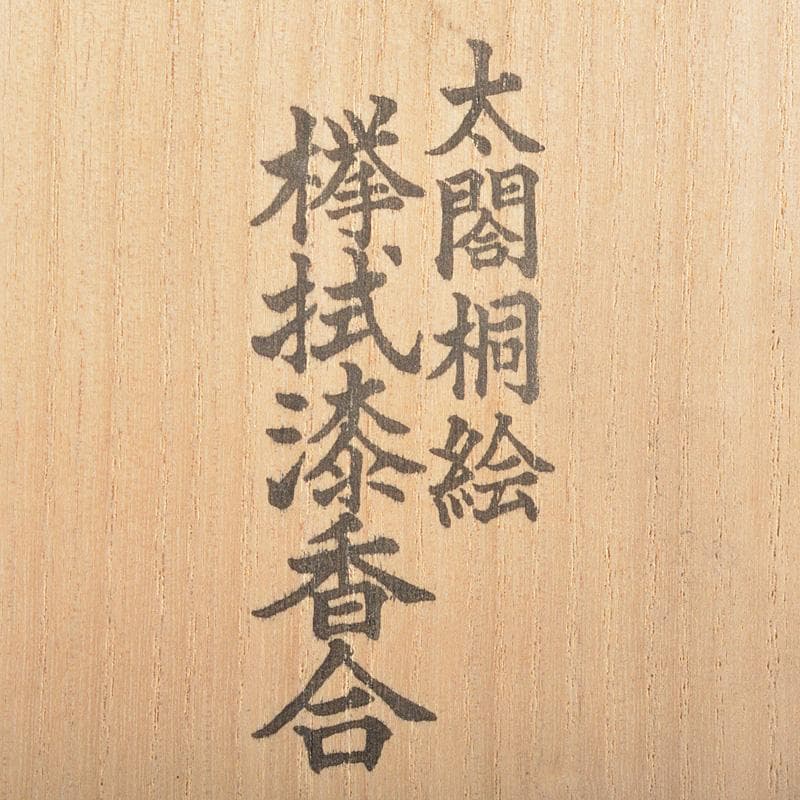 太閤桐絵
欅拭漆香合